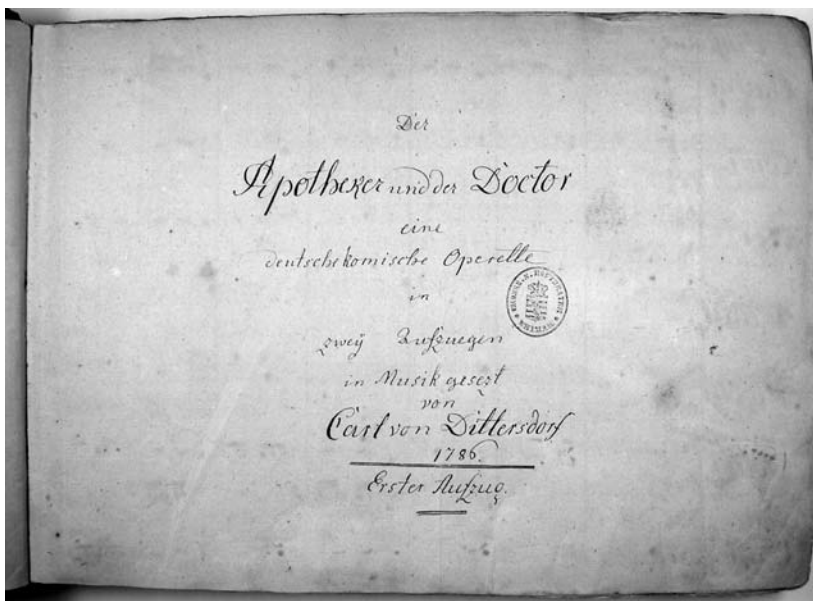 Der
Apotheker und der Doctor
eine
deutsche komische Operette
in
zweÿ Aufzuegen
in Musik gesezt
von
Carl von Dittersdorf
1786.
Erster Aufzug.